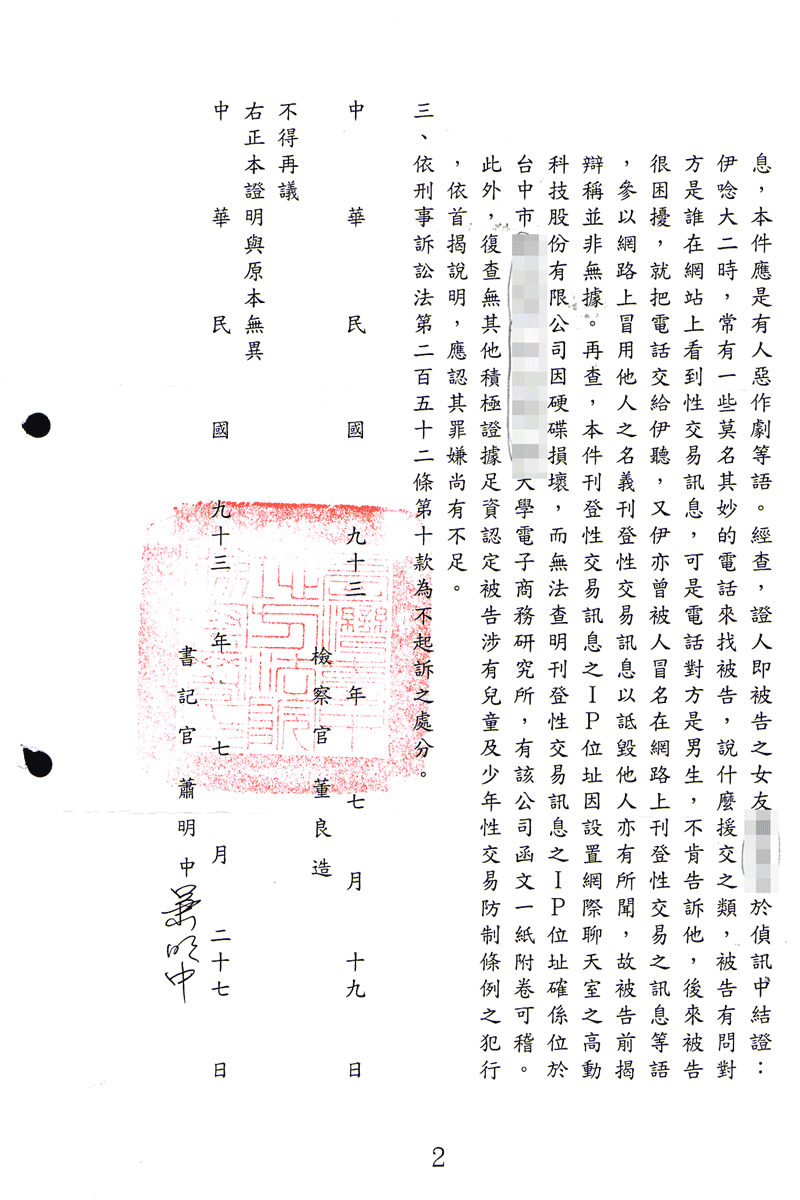 息，本件應是有人惡作劇等語。經查，證人即被告之女友於偵訊中結證：
伊唸大二時，常有一些莫名其妙的電話來找被告，說什麼援交之類，被告有問對
方是誰在網站上看到性交易訊息，可是電話對方是男生，不肯告訴他，後來被告
很困擾，就把電話交給伊聽，又伊亦曾被人冒名在網路上刊登性交易之訊息等語
，參以網路上冒用他人之名義刊登性交易訊息以詆毀他人亦有所聞，故被告前揭
辯稱並非無據。再查，本件刊登性交易訊息之ＩＰ位址因設置網際聊天室之高動
科技股份有限公司因硬碟損壞，而無法查明刊登性交易訊息之ＩＰ位址確係位於
台中市大學電子商務研究所，有該公司函文一紙附卷可稽。
此外，復查無其他積極證據足資認定被告涉有兒童及少年性交易防制條例之犯行
，依首揭說明，應認其罪嫌尚有不足。
三、依刑事訴訟法第二百五十二條第十款為不起訴之處分。
中華民國九十三年七月十九日
檢察官董良造
不得再議
右正本證明與原本無異
中華民國九十三年七月二十七日
書記官蕭明中
蕭明中
2